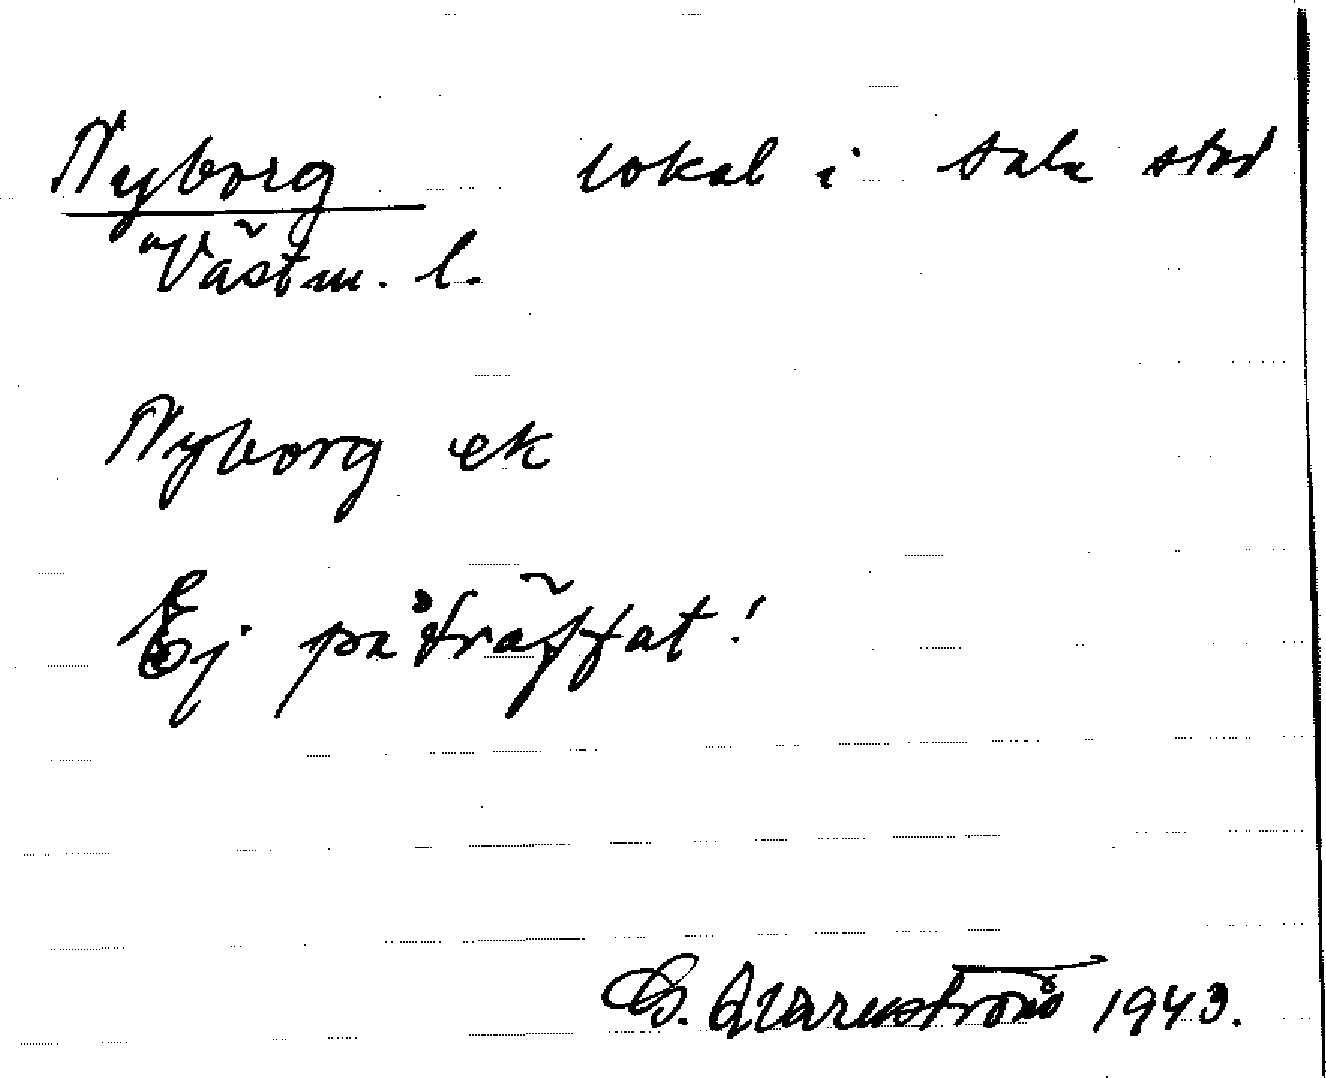 Nyborg lokal i Sala stad
Västm. l.
Nyborg ek
Ej påträffat!
G. Qvarnström 1943.